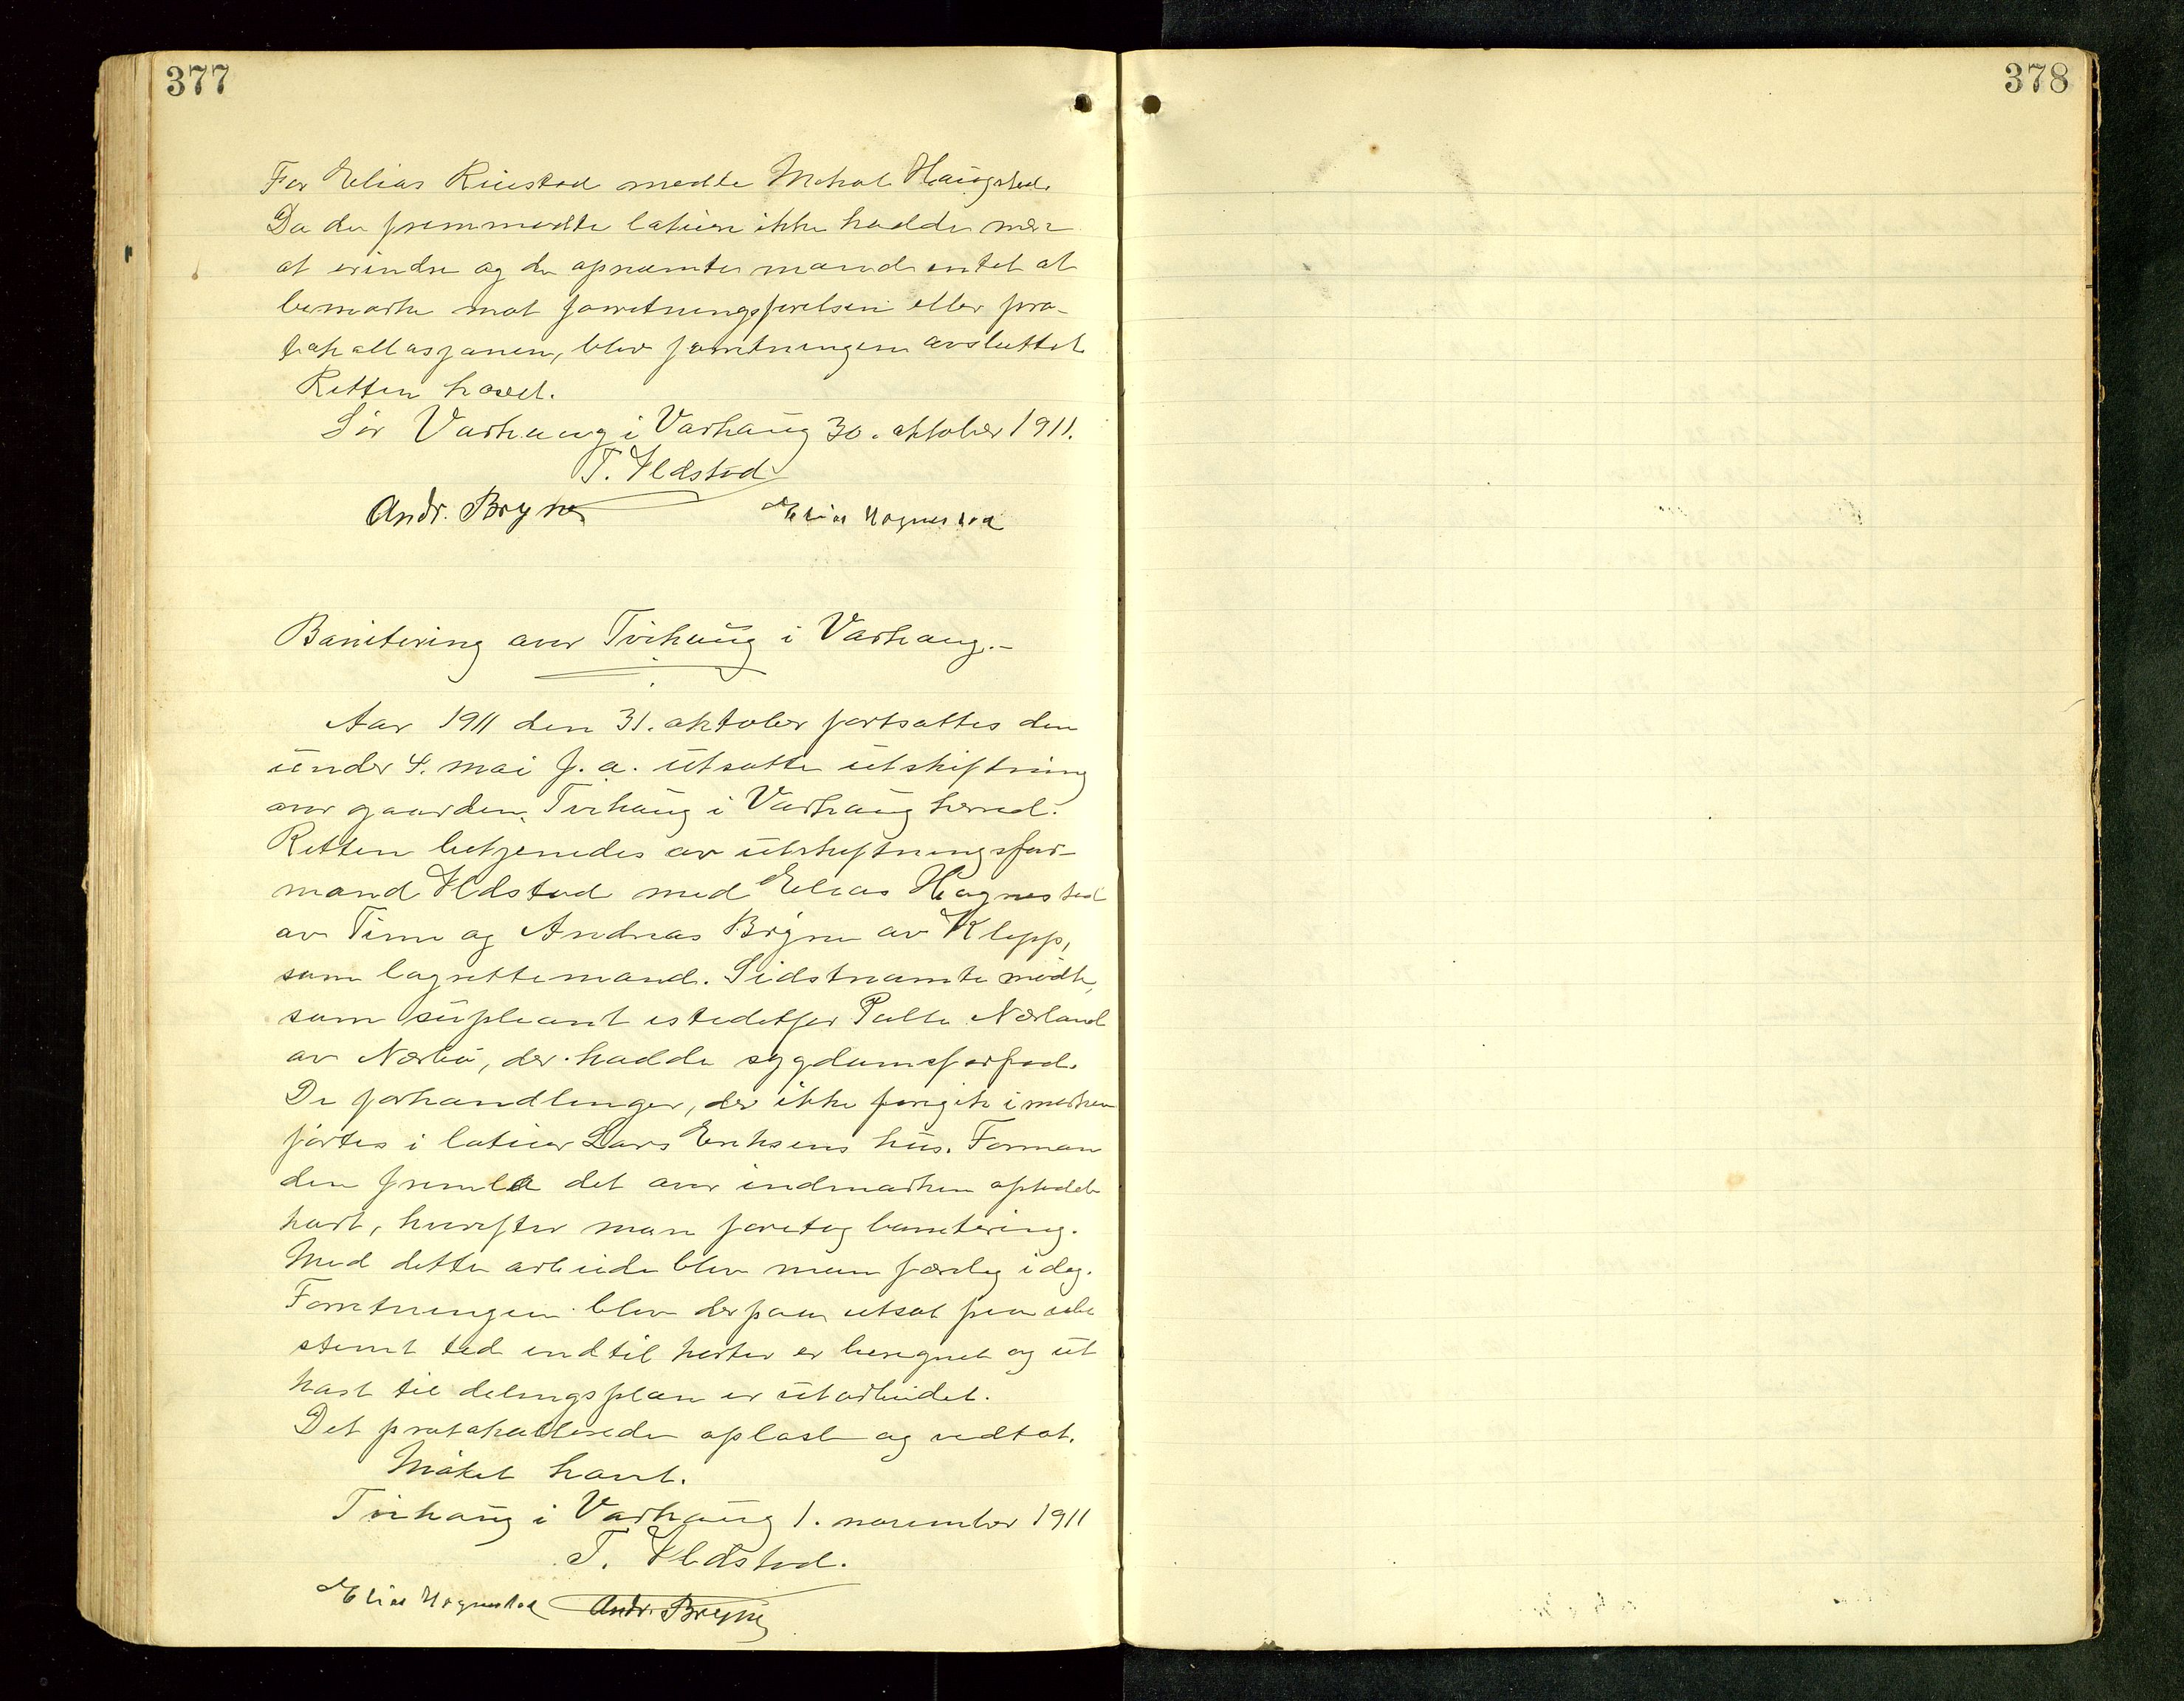 377
For Elias Ruestad mødte Mikal Haugstad.
Da de fremmødte latiere ikke hadde mer
at erindre og de opnævnte mænd intet at
bemerke mot forretningsførelsen eller pro-
tokollasjonen, blev forretningen avsluttet
Retten hævet.
Sør Varhaug i Varhaug 30. oktober 1911.
T. Ildstad
Andr. Bryne Elias Hognestad
Bonitering over Tvihaug i Varhaug.-
Aar 1911 den 31. oktober fortsattes den
under 4. mai f. a. utsatte utskiftning
over gaarden Tvihaug i Varhaug herred.
Retten betjenedes av utskiftningsfor-
mand Ildstad med Elias Hognestad
av Time og Andreas Bryne av Klepp,
som lagrettemænd. Sidstnævnte mødte,
som supleant istedetfor Palle Nærland
av Nærbø, der hadde sygdomsforfad.
De forhandlinger, der ikke foregik i marken
førtes i latier Lars Eriksens hus. Forman
den fremla det over indmarken optedete
kart, hvorefter man foretog bonitering.
Med dette arbeide blev man færdig idag.
Forretningen blev derpaa utsat paa ube
stemt tid indtil karter er beregnet og ut
kast til delingsplan er utarbeidet.
Det protokollerede oplæst og vedtat.
Møtet hævt.
Tvihaug i Varhaug 1. november 1911
T. Ildstad.
Elias Hognestad Andr. Bryne
378